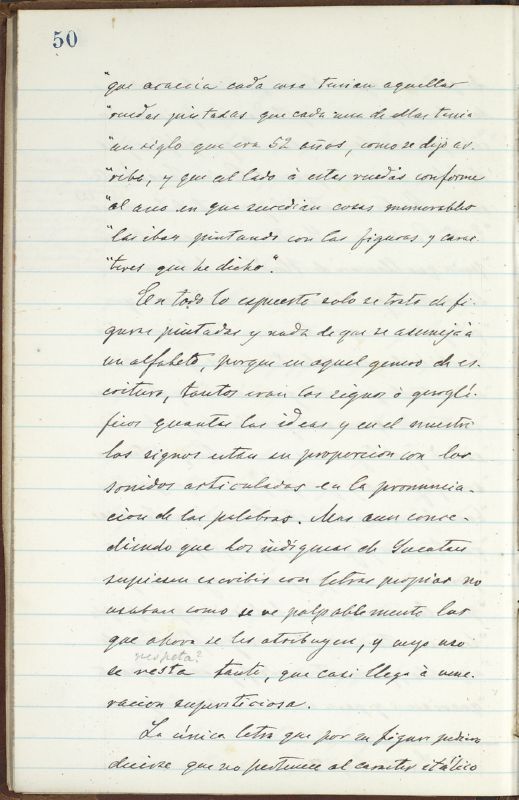 50
"que acaecia cada cosa tenian aquellas
"ruedas pintadas que cada una de ellas tenia
"un siglo que era 52 años, como se dijo ar-
"riba, y que al lado á estas ruedas conforme
"al ano en que sucedian cosas memorables
"las iban pintando con las figuras y carac-
"teres que he dicho".
En todo lo espuesto solo se trata de fi-
guras pintadas y nada de que se asemeje á
un alfabeto, porque en aquel genero de es-
critura, tantos eran los signos ó gerogli-
ficos quantas las ideas y en el nuestro
los signos estan en proporcion con los
sonidos articulados en la pronuncia-
cion de las palabras. Mas aun conce-
diendo que los indigenas de Yucatan
supiesen escribir con letras propias no
usaban como se ve palpablemente las
que ahora se les atribuyen, y cuyo uso
respeta?
se resta tanto, que casi llega á vene-
racion supersticiosa.
La única letra que por su figura pudiera
decirse que no pertenece al caracter itálico